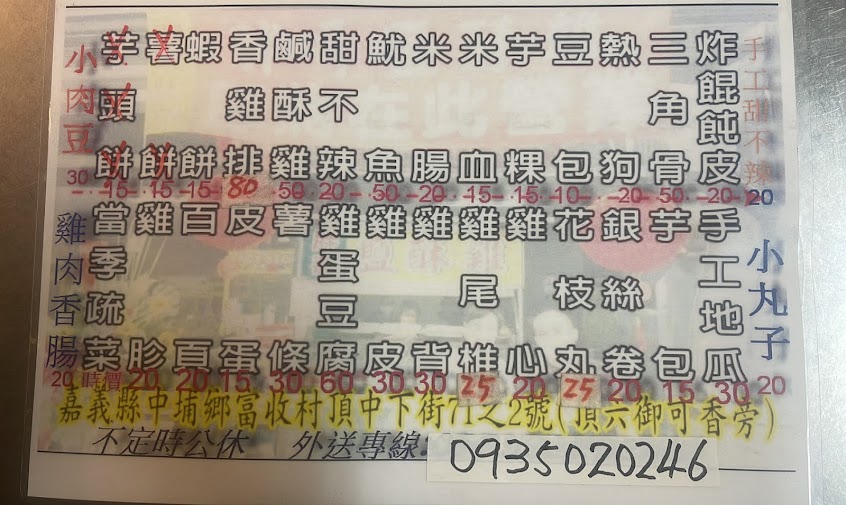 手工甜不辣 20
炸餛飩皮 20
三角骨 50
熱狗 20
豆包 10
芋粿 15
米血 15
米腸 20
魷魚 50
甜不辣 20
鹹酥雞 50
香雞排 80
蝦餅 15
薯餅 15
芋頭餅 15
小肉豆 30
小丸子 20
手工地瓜 30
芋包 15
銀絲卷 20
花枝丸 25
雞心 20
雞尾椎 25
雞背 30
雞皮 30
雞蛋豆腐 60
薯條 30
皮蛋 15
百頁 20
雞胗 20
當季疏菜 時價
雞肉香腸 20
嘉義縣中埔鄉富收村頂中下街71之2號(頂六御可香旁)
不定時公休 外送專線:0935020246